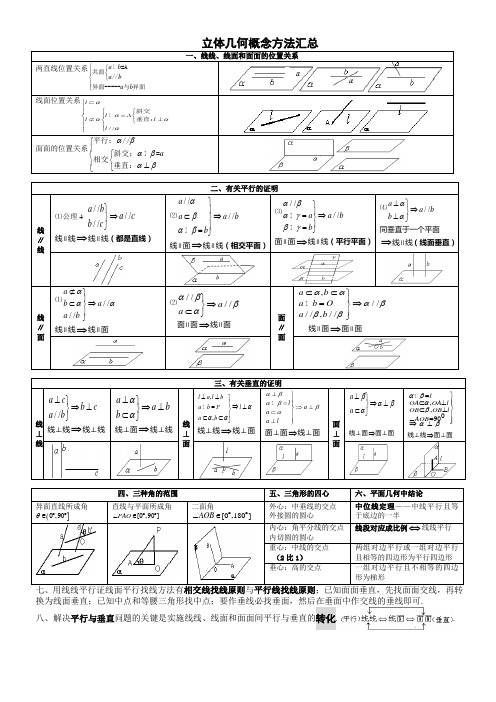 立体几何概念方法汇总
一、线线、线面和面面的位置关系
两直线位置关系
共面 a∩b=A
a//b
异面-----a与b异面
线面位置关系
l⊂α
l⊄α l∩α=A 斜交
垂直:l⊥α
l//α
面面的位置关系
平行:α//β
相交 斜交:α∩β=a
垂直:α⊥β
二、有关平行的证明
线∥线
⑴公理4 a//b b//c ⇒a//c
线∥线⇒线∥线(都是直线)
⑵ a//α a⊂β α∩β=b ⇒a//b
线∥面⇒线∥线(相交平面)
⑶ α//β α∩γ=a β∩γ=b ⇒a//b
面∥面⇒线∥线(平行平面)
⑷ a⊥α b⊥α ⇒a//b
同垂直于一个平面
⇒线∥线(线面垂直)
线∥面
⑴ a⊄α b⊂α a//b ⇒a//α
线∥线⇒线∥面
⑵ α//β a⊂α ⇒a//β
面∥面⇒线∥面
面∥面
a⊂α,b⊂α a∩b=O a//β,b//β ⇒α//β
线∥面⇒面∥面
三、有关垂直的证明
线⊥线
a⊥c a//b ⇒b⊥c
线⊥线⇒线⊥线
a⊥α b⊂α ⇒a⊥b
线⊥面⇒线⊥线
线⊥面
l⊥a,l⊥b a∩b=P a⊂α,b⊂α ⇒l⊥α
线⊥线⇒线⊥面
α⊥β α∩β=l a⊂α a⊥l ⇒a⊥β
面⊥面⇒线⊥面
面⊥面
a⊥β a⊂α ⇒α⊥β
线⊥面⇒面⊥面
α∩β=l OA⊂α,OA⊥l OB⊂β,OB⊥l ∠AOB=90⁰ ⇒α⊥β
线⊥线⇒面⊥面
四、三种角的范围
五、三角形的四心
六、平面几何中结论
异面直线所成角 θ∈(0°,90°]
直线与平面所成角 ∠PAO∈[0°,90°]
二面角 ∠AOB∈[0°,180°]
外心:中垂线的交点 外接圆的圆心
中位线定理——中线平行且等于底边的一半
内心:角平分线的交点 内切圆的圆心
线段对应成比例⇔线线平行
重心:中线的交点(2比1)
两组对边平行或一组对边平行且相等的四边形为平行四边形
垂心:高的交点
一组对边平行且不相等的四边形为梯形
七、用线线平行证线面平行找线方法有相交线找线原则与平行线找线原则;已知面面垂直,先找面面交线,再转
换为线面垂直;已知中点和等腰三角形找中点;要作垂线必找垂面,然后在垂面中作交线的垂线即可.
八、解决平行与垂直问题的关键是实施线线、线面和面面间平行与垂直的转化.(平行)线线⇔线面⇔面面(垂直).